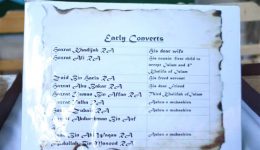 Early Convers
Hazrat Khadijah R.A His dear wife
Hazrat Ali R.A His cousin first child to
accept Islam and 4th
Khalifa of Islam
Zaid Bin Haris R.A His freed servant
Hazrat Abu Bakar R.A His dear friend
Hazrat Usman Bin Affan R.A Third Khalifah of Islam
Talha R.A Ashra e mubashira
Abdurrehman Bin Auf
Bin Abi Waqas R.A Ashra e mubashira
Abdullah Bin Masood R.A